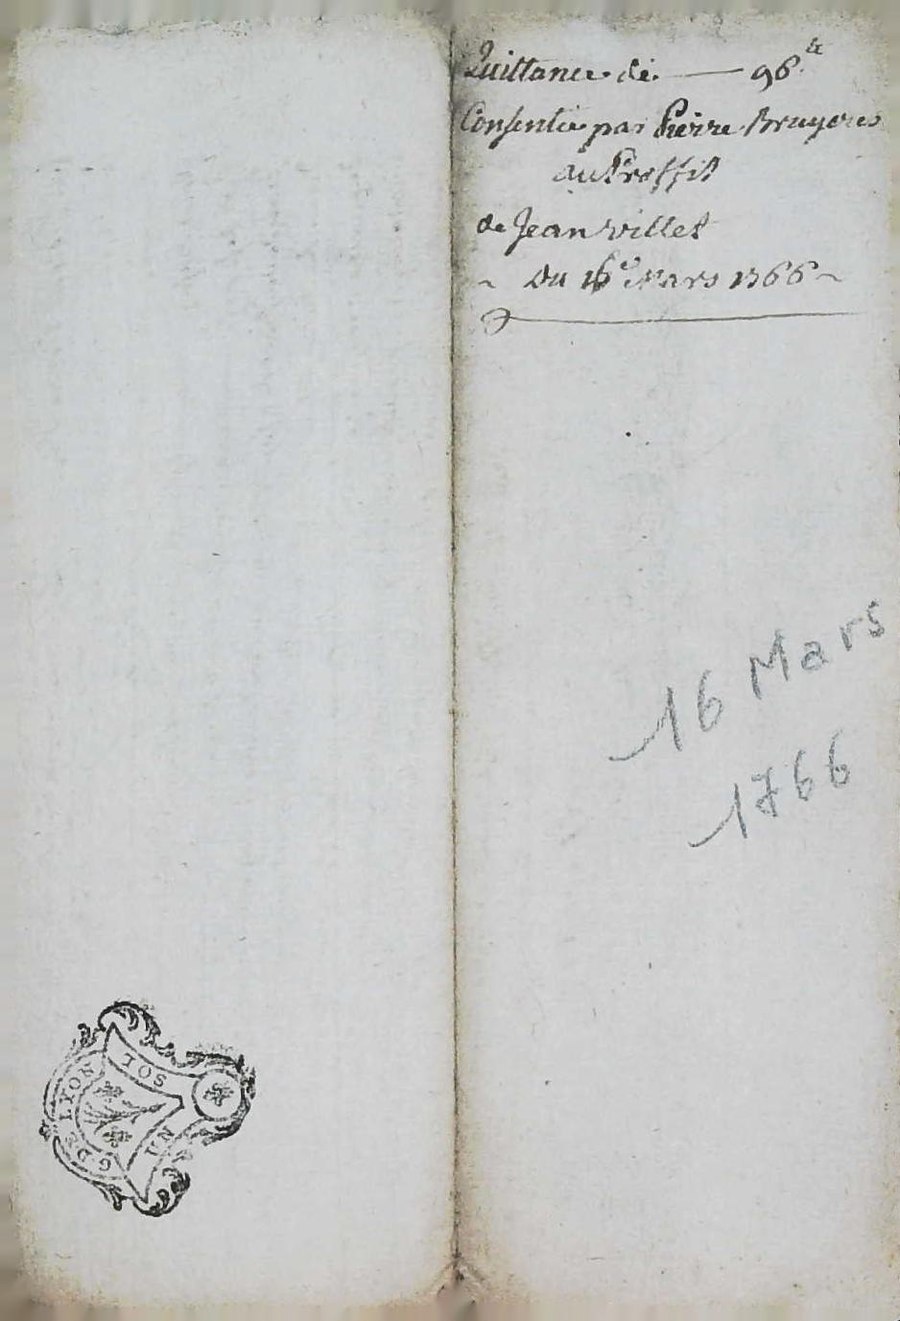 Quittance de — 96#
Consentie par Pierre Bruyeres
au Proffit
de Jean Villet
~ Du 16e Mars 1766 ~
16 Mars
1766
G DE LYON
10S